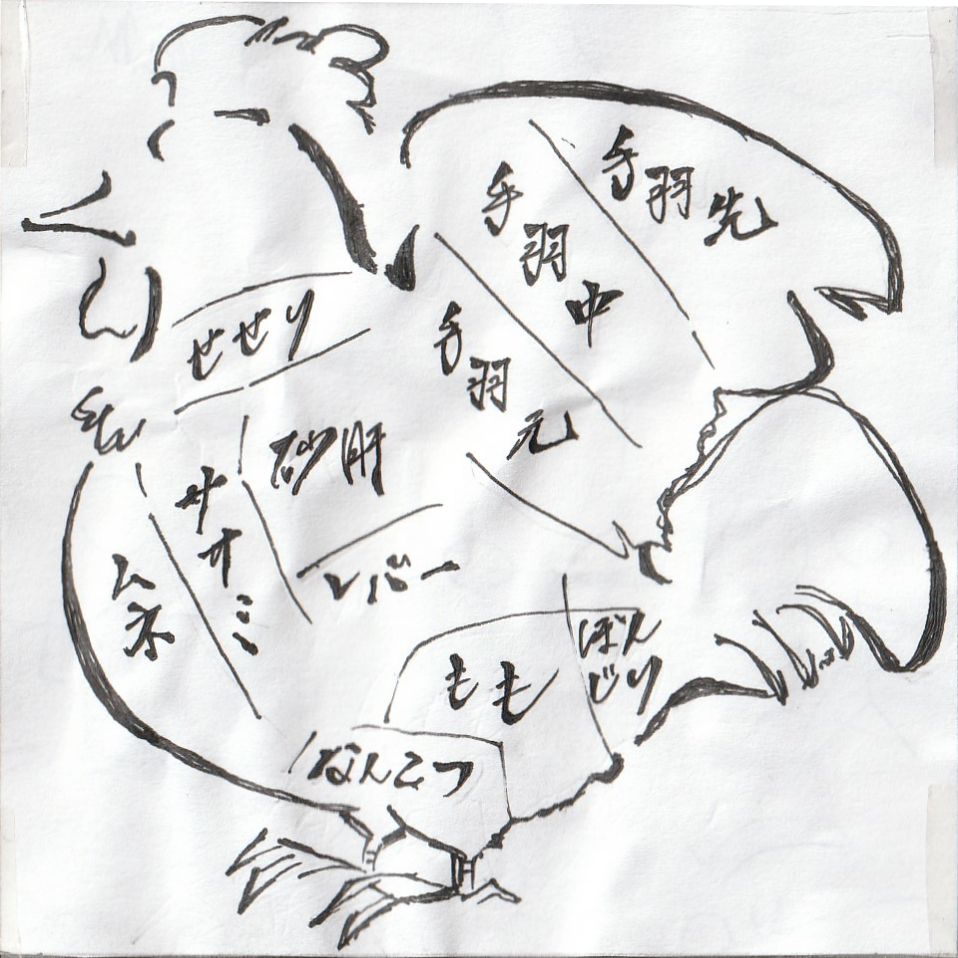 手羽先
手羽中
手羽元
せせり
砂肝
ササミ
ムネ
レバー
もも
ぼん
じり
なんこつ